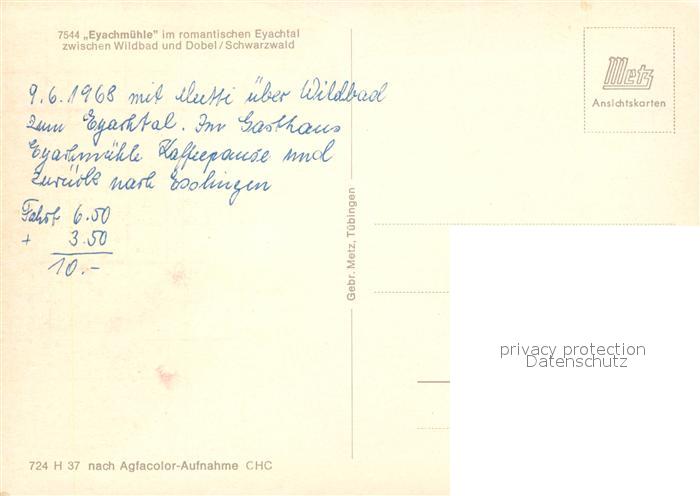 7544 „Eyachmühle" im romantischen Eyachtal
zwischen Wildbad und Dobel/Schwarzwald
Metz
Ansichtskarten
9.6.1968 mit Mutti über Wildbad
zum Eyachtal. Im Gasthaus
Eyachmühle Kaffeepause und
zurück nach Esslingen
Fahrt 6.50
+ 3.50
10.-
Gebr. Metz, Tübingen
privacy protection
Datenschutz
724 H 37 nach Agfacolor-Aufnahme CHC